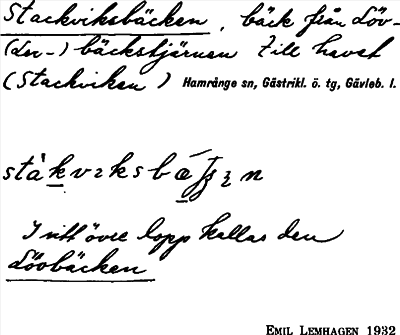 Stackviksbäcken, bäck från Löv-
(Löv-) bäckstjärnen till havet
(Stackviken) Hamrånge sn, Gästrikl. ö. tg, Gävleb. l.
I sitt övre lopp kallas den
Lövbäcken
EMIL LEMHAGEN 1932